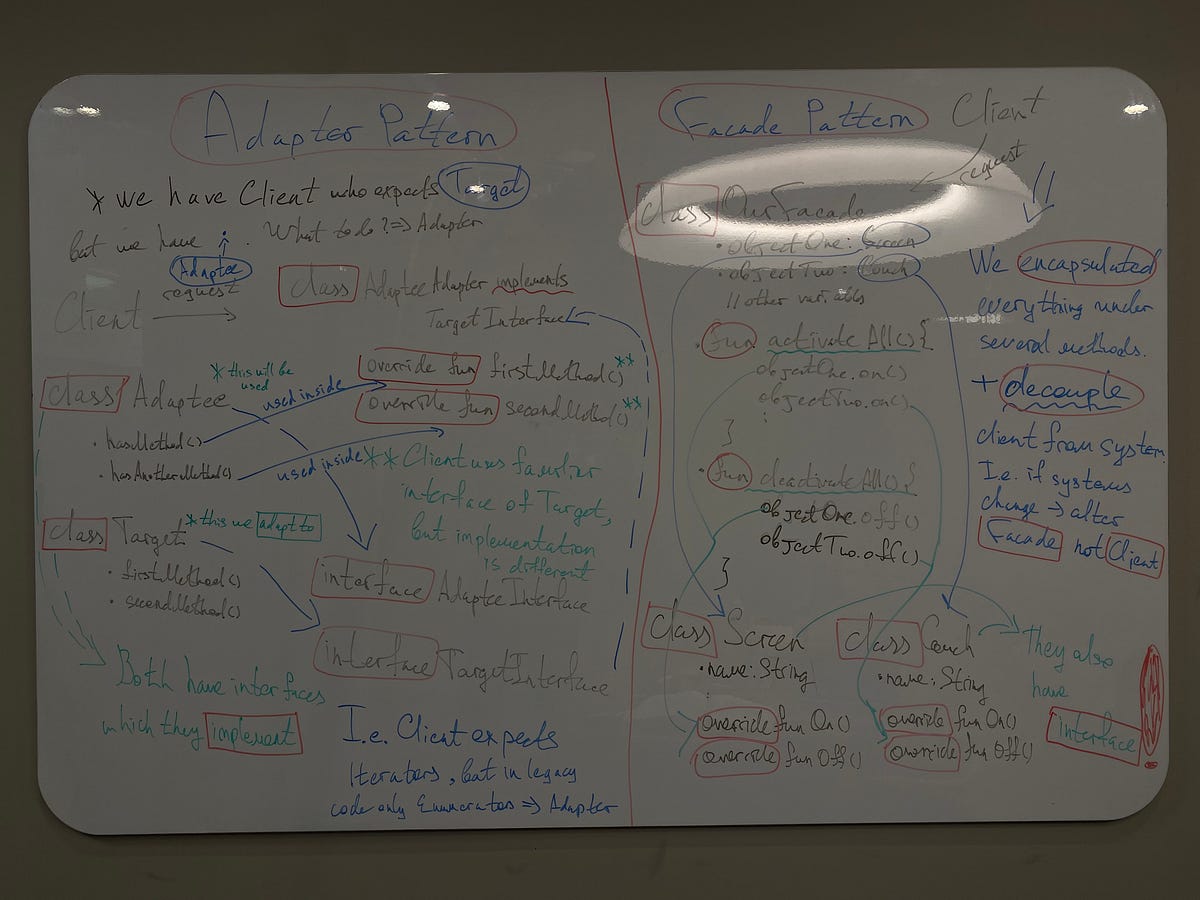 Adapter Pattern
* we have Client who expects Target
but we have . What to do? => Adapter
Adaptee
request
Client
class Adaptee Adapter implements
Target Interface
override fun firstMethod() **
override fun secondMethod() **
class Adaptee
* this will be
used
• hasMethod()
• hasAnotherMethod()
used inside
used inside
** Client uses familier
interface of Target,
but implementation
is different
class Target
* this we adapt to
• firstMethod()
• secondMethod()
interface Adaptee Interface
interface TargetInterface
Both have interfaces
which they implement
I.e. Client expects
Iterators, but in legacy
code only Enumerators => Adapter
Facade Pattern
Client
request
class OurFacade
• objectOne: Screen
• objectTwo: Couch
// other variables
• fun activateAll() {
objectOne.on()
objectTwo.on()
}
• fun deactivateAll() {
objectOne.off()
objectTwo.off()
}
class Screen
• name: String
override fun On()
override fun Off()
class Couch
• name: String
override fun On()
override fun Off()
We encapsulated
everything under
several methods.
+ decouple
client from system.
I.e. if systems
change → alter
Facade not Client
They also
have
interface